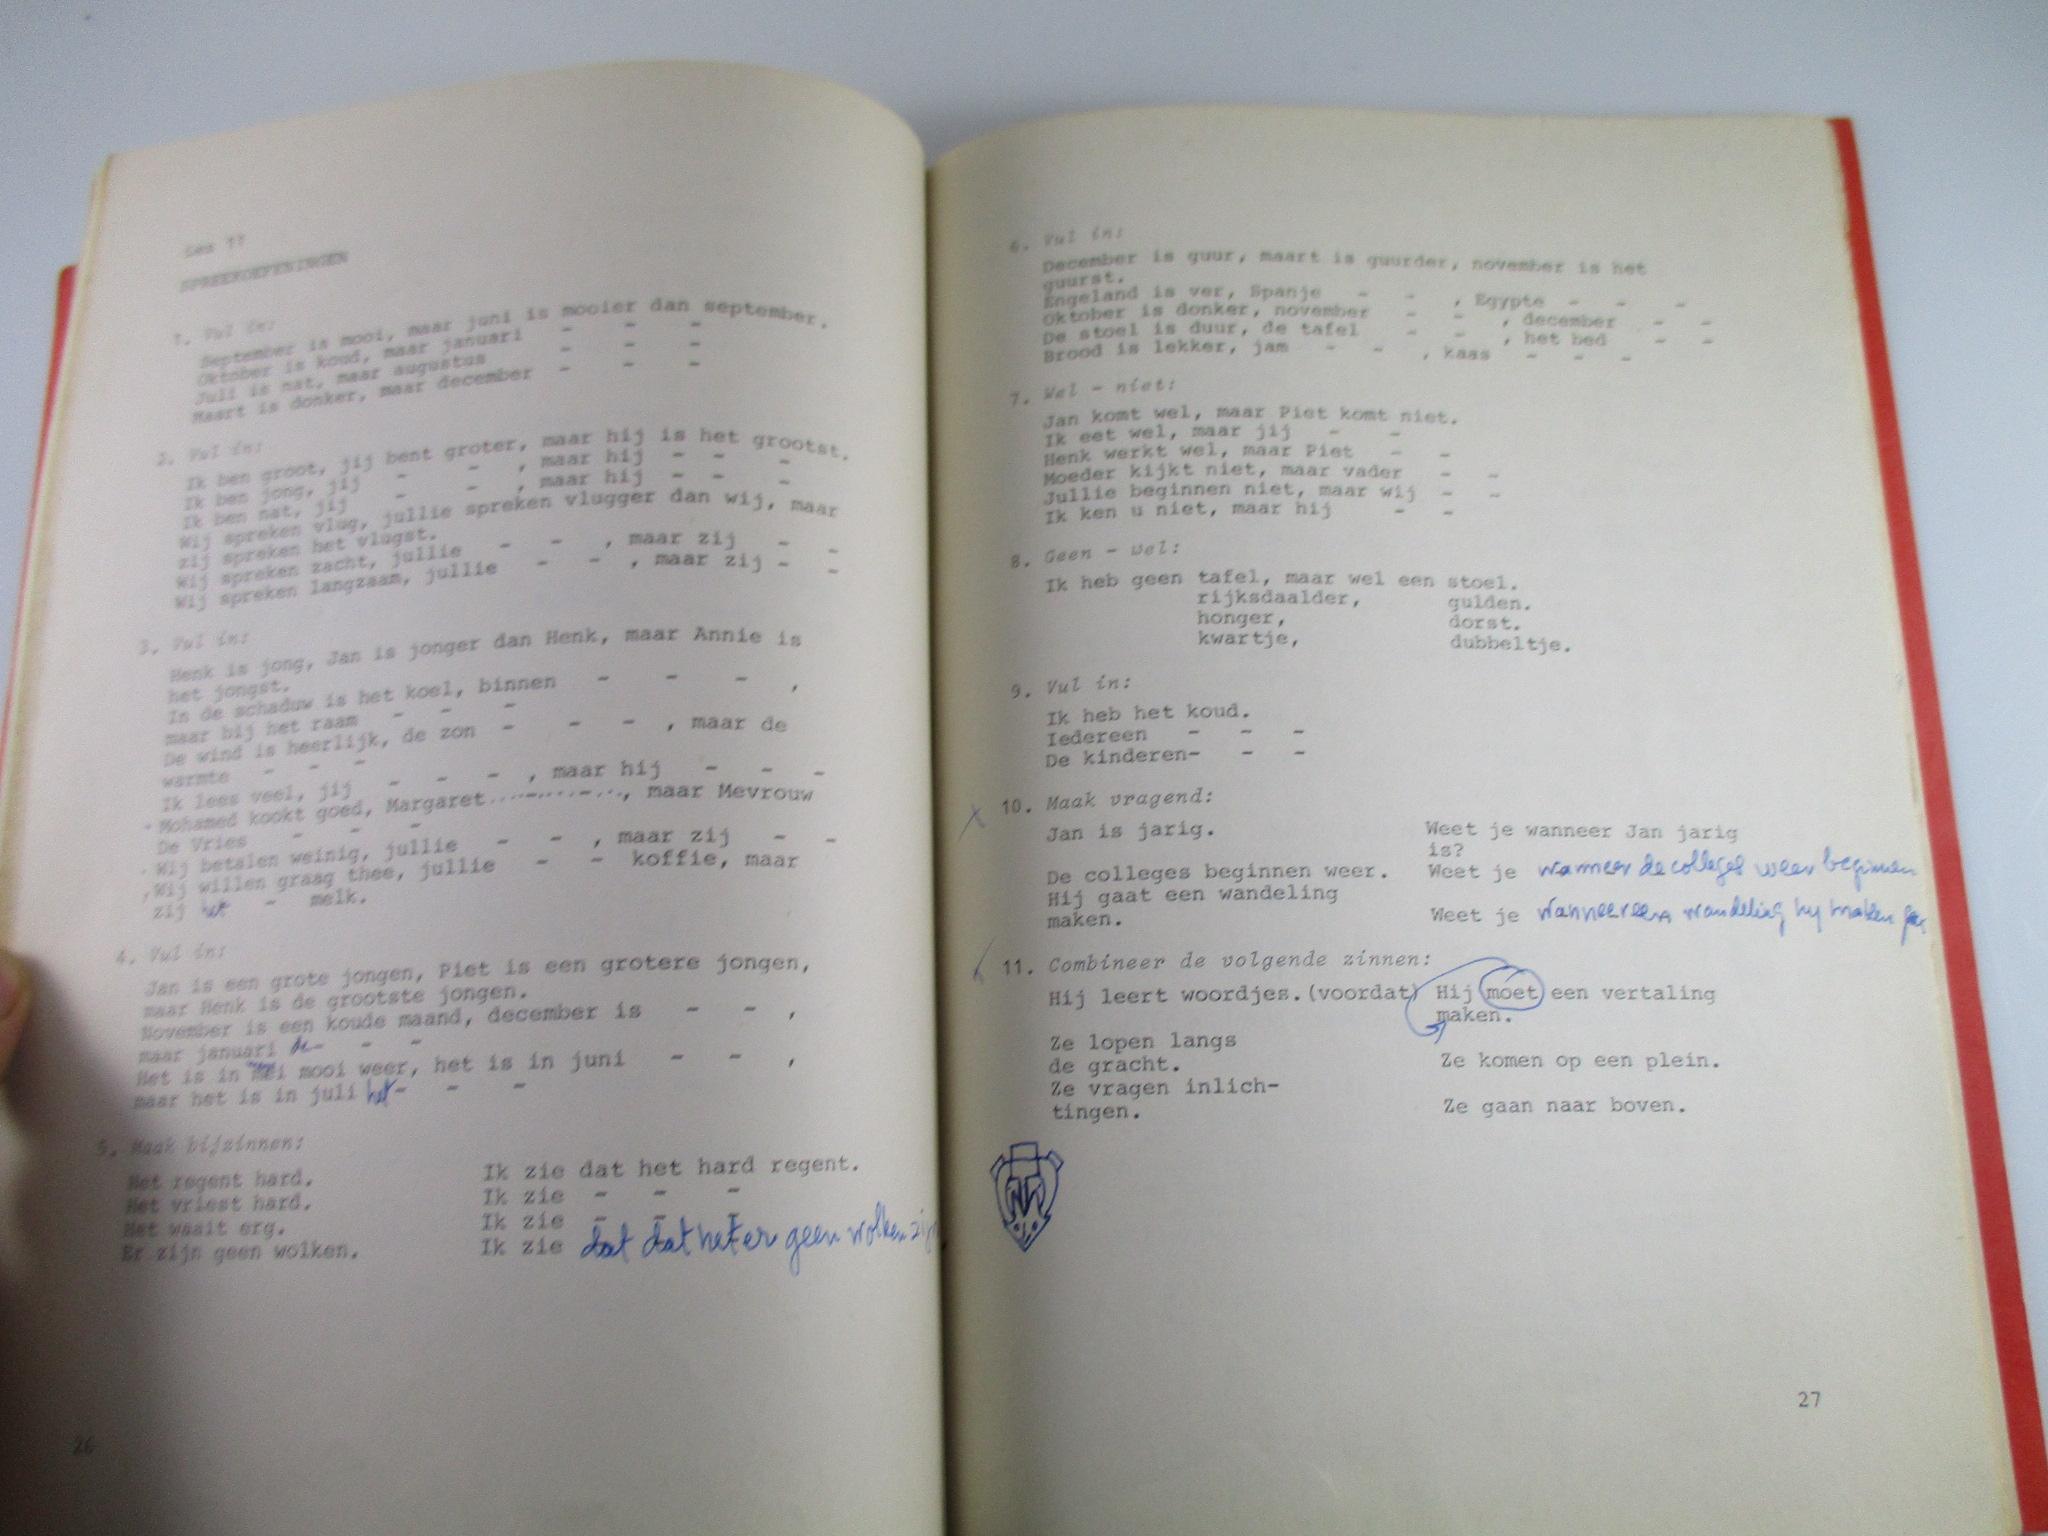 Les 11
SPREEKOEFENINGEN
1. Vul in:
September is mooi, maar juni is mooier dan september.
Oktober is koud, maar januari - - -
Juli is nat, maar augustus - - -
Maart is donker, maar december - - -
2. Vul in:
Ik ben groot, jij bent groter, maar hij is het grootst.
Ik ben jong, jij - - , maar hij - - -
Ik ben nat, jij - - , maar hij - - -
Wij spreken vlug, jullie spreken vlugger dan wij, maar
zij spreken het vlugst.
Wij spreken zacht, jullie - - , maar zij - -
Wij spreken langzaam, jullie - - , maar zij - -
3. Vul in:
Henk is jong, Jan is jonger dan Henk, maar Annie is
het jongst.
In de schaduw is het koel, binnen - - - ,
maar bij het raam - - -
De wind is heerlijk, de zon - - - , maar de
warmte - - -
Ik lees veel, jij - - - , maar hij - - -
Mohamed kookt goed, Margaret....-.....-..., maar Mevrouw
De Vries - - -
Wij betalen weinig, jullie - - , maar zij - -
Wij willen graag thee, jullie - - koffie, maar
zij het - melk.
4. Vul in:
Jan is een grote jongen, Piet is een grotere jongen,
maar Henk is de grootste jongen.
November is een koude maand, december is - - ,
maar januari de - - -
Het is in mei mooi weer, het is in juni - - ,
maar het is in juli het - - -
5. Maak bijzinnen:
Het regent hard. Ik zie dat het hard regent.
Het vriest hard. Ik zie - - -
Het waait erg. Ik zie - - -
Er zijn geen wolken. Ik zie dat dat het er geen wolken zijn
26
6. Vul in:
December is guur, maart is guurder, november is het
guurst.
Engeland is ver, Spanje - - , Egypte - - -
Oktober is donker, november - - , december - -
De stoel is duur, de tafel - - , het bed - -
Brood is lekker, jam - - , kaas - - -
7. Wel - niet:
Jan komt wel, maar Piet komt niet.
Ik eet wel, maar jij - -
Henk werkt wel, maar Piet - -
Moeder kijkt niet, maar vader - -
Jullie beginnen niet, maar wij - -
Ik ken u niet, maar hij - -
8. Geen - wel:
Ik heb geen tafel, maar wel een stoel.
rijksdaalder, gulden.
honger, dorst.
kwartje, dubbeltje.
9. Vul in:
Ik heb het koud.
Iedereen - - -
De kinderen- - -
10. Maak vragend:
Jan is jarig. Weet je wanneer Jan jarig
is?
De colleges beginnen weer. Weet je wanneer de colleges weer beginnen
Hij gaat een wandeling
maken. Weet je wanneer een wandeling hy maken
11. Combineer de volgende zinnen:
Hij leert woordjes.(voordat) Hij moet een vertaling
maken.
Ze lopen langs
de gracht. Ze komen op een plein.
Ze vragen inlich-
tingen. Ze gaan naar boven.
27